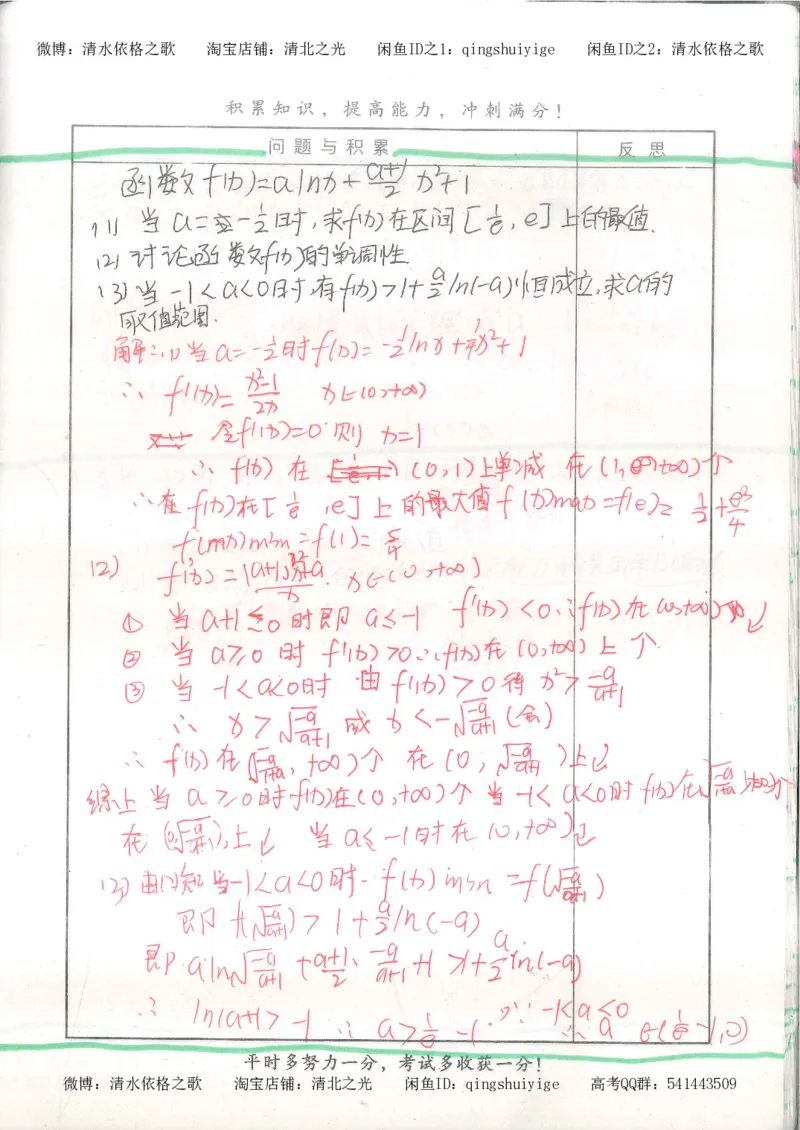 微博：清水依格之歌 淘宝店铺：清北之光 闲鱼ID之1：qingshuiyige 闲鱼ID之2：清水依格之歌
积累知识，提高能力，冲刺满分！
问题与积累 反思
函数 f(x)=alnx+(a+1)/2 x²+1
(1) 当 a=-1/2时,求f(x)在区间[1/e,e]上的最值.
(2) 讨论函数f(x)的单调性
(3) 当 -1<a<0时,有f(x)>1+a/2 ln(-a)恒成立,求a的
取值范围.
解:(1)当a=-1/2时f(x)=-1/2lnx+1/4x²+1
∴ f'(x)=(x²-1)/2x x∈(0,+∞)
令f'(x)=0 则 x=1
∴ f(x) 在 (0,1)上单减 在(1,+∞)↑
∴在 f(x)在[1/e,e]上的最大值f(x)max=f(e)=1/2+e²/4
f(x)min=f(1)=5/4
(2) f'(x)=((a+1)x²+a)/x x∈(0,+∞)
① 当 a+1≤0时即a≤-1 f'(x)<0∴f(x)在(0,+∞)↓
② 当 a≥0 时 f'(x)>0∴f(x)在(0,+∞)上↑
③ 当 -1<a<0时 由f'(x)>0得 x²>-a/(a+1)
∴ x>√(-a/(a+1)) 或x<-√(-a/(a+1)) (舍)
∴ f(x)在(√(-a/(a+1)),+∞)↑ 在(0,√(-a/(a+1)))上↓
综上 当 a≥0时f(x)在(0,+∞)↑ 当-1<a<0时f(x)在(√(-a/(a+1)),+∞)↑
在(0,√(-a/(a+1)))上↓ 当a≤-1时在(0,+∞)↓
(3) 由(2)知当-1<a<0时 f(x)min=f(√(-a/(a+1)))
即 f(√(-a/(a+1)))>1+a/2 ln(-a)
即 aln√(-a/(a+1))+(a+1)/2·-a/(a+1)+1>1+a/2 ln(-a)
∴ ln(a+1)>-1 ∴ a>1/e-1 又∵-1<a<0
∴a∈(1/e-1,0)
平时多努力一分，考试多收获一分！
微博：清水依格之歌 淘宝店铺：清北之光 闲鱼ID：qingshuiyige 高考QQ群：541443509